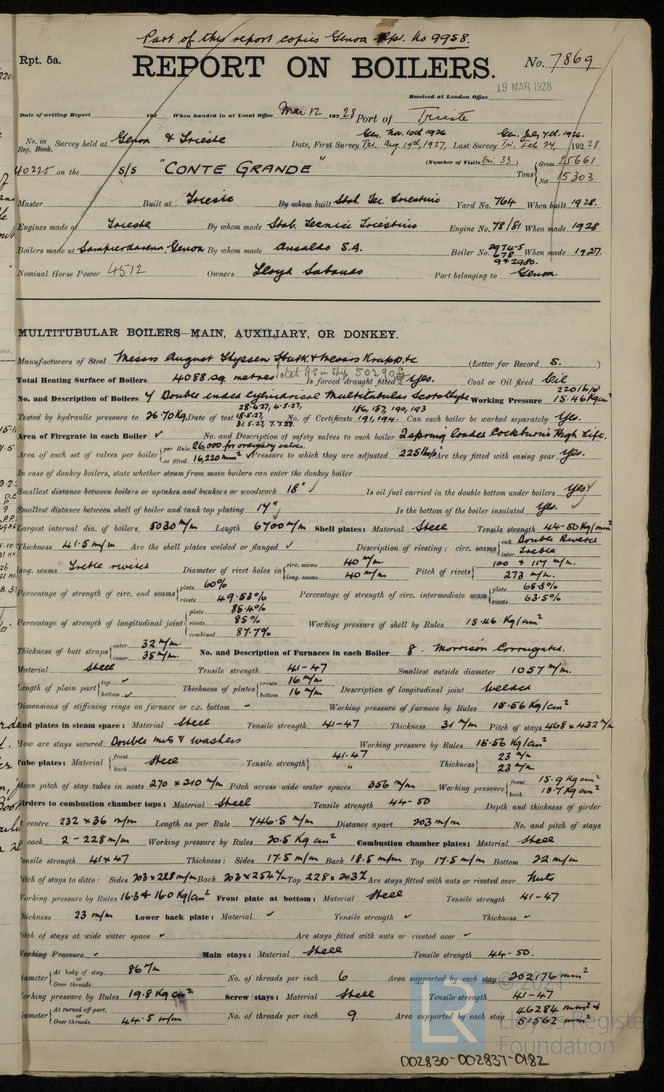 Part of this report copies Genoa Rpt. No 9958.
Rpt. 5a.
REPORT ON BOILERS.
No. 7869
19 MAR 1928
Received at London Office
Date of writing Report 192 When handed in at Local Office Mar 12 1928 Port of Trieste
No. in Reg. Book. Survey held at Genoa & Trieste Date, First Survey Gen. Nov. 10th 1926 Tri. Aug. 19th, 1927, Last Survey Tri. Feb 24, 1928
(Number of Visits Tri. 33.)
40225 on the S/S "CONTE GRANDE" Tons Gross 25661 Net 15303
Master Built at Trieste By whom built Stab. Tec. Triestino Yard No. 764 When built 1928.
Engines made at Trieste By whom made Stab. Tecnico Triestino Engine No. 78/81 When made 1928
Boilers made at Sampierdarena. Genoa By whom made Ansaldo S.A. Boiler No. When made 1927.
Nominal Horse Power 4512 Owners Lloyd Sabaudo Port belonging to Genoa
MULTITUBULAR BOILERS—MAIN, AUXILIARY, OR DONKEY.
Manufacturers of Steel Messrs August Thyssen Hutte & Messrs Krupp. (Letter for Record S.)
Total Heating Surface of Boilers 4088 sq. metres Is forced draught fitted Yes. Coal or Oil fired Oil
No. and Description of Boilers 4 Double ended Cylindrical Multitubular Scotch type Working Pressure 220 lbs/□" 15.46 Kg/cm²
Tested by hydraulic pressure to 26.70 Kg. Date of test No. of Certificate 186, 187, 190, 193 191, 194. Can each boiler be worked separately Yes.
Area of Firegrate in each Boiler ✓ No. and Description of safety valves to each boiler 2 spring loaded Cockburn's High Lift.
Area of each set of valves per boiler per Rule 26,000 for ordinary valve. as fitted 16,220 mm² Pressure to which they are adjusted 225 lbs/□ Are they fitted with easing gear Yes.
In case of donkey boilers, state whether steam from main boilers can enter the donkey boiler
Smallest distance between boilers or uptakes and bunkers or woodwork 18" ✓ Is oil fuel carried in the double bottom under boilers Yes ✓
Smallest distance between shell of boiler and tank top plating 17" Is the bottom of the boiler insulated Yes.
Largest internal dia. of boilers 5030 m/m Length 6700 m/m Shell plates: Material Steel Tensile strength 44-50 Kg/mm²
Thickness 41.5 m/m Are the shell plates welded or flanged ✓ Description of riveting: circ. seams end Double Riveted inter. Treble
long. seams Treble riveted Diameter of rivet holes in circ. seams 40 m/m. long. seams 40 m/m Pitch of rivets 100 & 117 m/m. 273 m/m.
Percentage of strength of circ. end seams plate 60% rivets 49.53% Percentage of strength of circ. intermediate seam plate 65.5% rivets 63.5%
Percentage of strength of longitudinal joint plate 85.4% rivets 85% combined 87.7% Working pressure of shell by Rules 15.46 Kg/cm²
Thickness of butt straps outer 32 m/m inner 35 m/m. No. and Description of Furnaces in each Boiler 8. Morrison Corrugated.
Material Steel Tensile strength 41-47 Smallest outside diameter 1057 m/m.
Length of plain part top ✓ bottom ✓ Thickness of plates crown 16 m/m bottom 16 m/m Description of longitudinal joint Welded
Dimensions of stiffening rings on furnace or c.c. bottom ✓ Working pressure of furnace by Rules 15.56 Kg/cm²
End plates in steam space: Material Steel Tensile strength 41-47 Thickness 31 m/m Pitch of stays 468 x 432 m/m
How are stays secured Double nuts & washers Working pressure by Rules 15.56 Kg/cm²
Tube plates: Material front back Steel Tensile strength 41.47 " Thickness 23 m/m 23 m/m
Mean pitch of stay tubes in nests 270 x 210 m/m Pitch across wide water spaces 356 m/m Working pressure front 15.9 Kg/cm² back 18.7 Kg/cm²
Girders to combustion chamber tops: Material Steel Tensile strength 44-50 Depth and thickness of girder
at centre 232 x 36 m/m Length as per Rule 746.5 m/m Distance apart 203 m/m No. and pitch of stays
in each 2 - 228 m/m Working pressure by Rules 20.5 Kg cm² Combustion chamber plates: Material Steel
Tensile strength 41 & 47 Thickness: Sides 17.5 m/m Back 18.5 m/m Top 17.5 m/m Bottom 22 m/m
Pitch of stays to ditto: Sides 203 x 228 m/m Back 203 x 254 m/m Top 228 x 203 m/m Are stays fitted with nuts or riveted over Nuts
Working pressure by Rules 16.3 & 16.0 Kg/cm² Front plate at bottom: Material Steel Tensile strength 41-47
Thickness 23 m/m Lower back plate: Material ✓ Tensile strength ✓ Thickness ✓
Pitch of stays at wide water space ✓ Are stays fitted with nuts or riveted over ✓
Working Pressure ✓ Main stays: Material Steel Tensile strength 44-50.
Diameter At body of stay, or Over threads 86 m/m No. of threads per inch 6 Area supported by each stay 202176 mm²
Working pressure by Rules 19.8 Kg cm² Screw stays: Material Steel Tensile strength 41-47
Diameter At turned off part, or Over threads 44.5 m/m No. of threads per inch 9 Area supported by each stay 46284 mm² & 51562 mm²
© 2021
LR
Lloyd's Register
Foundation
002830-002837-0182